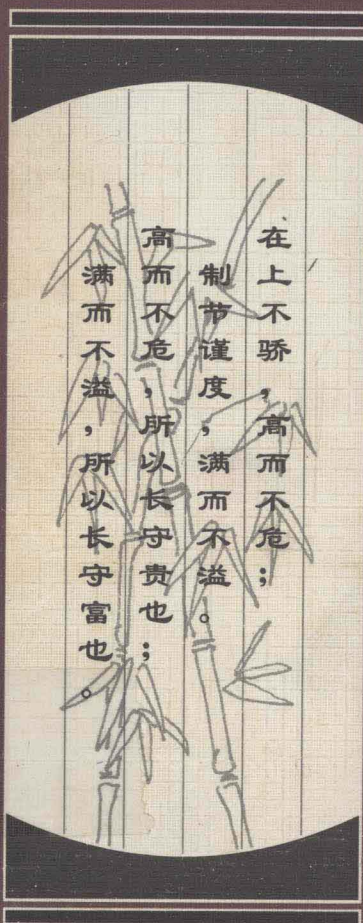 在上不骄，高而不危；
制节谨度，满而不溢。
高而不危，所以长守贵也；
满而不溢，所以长守富也。